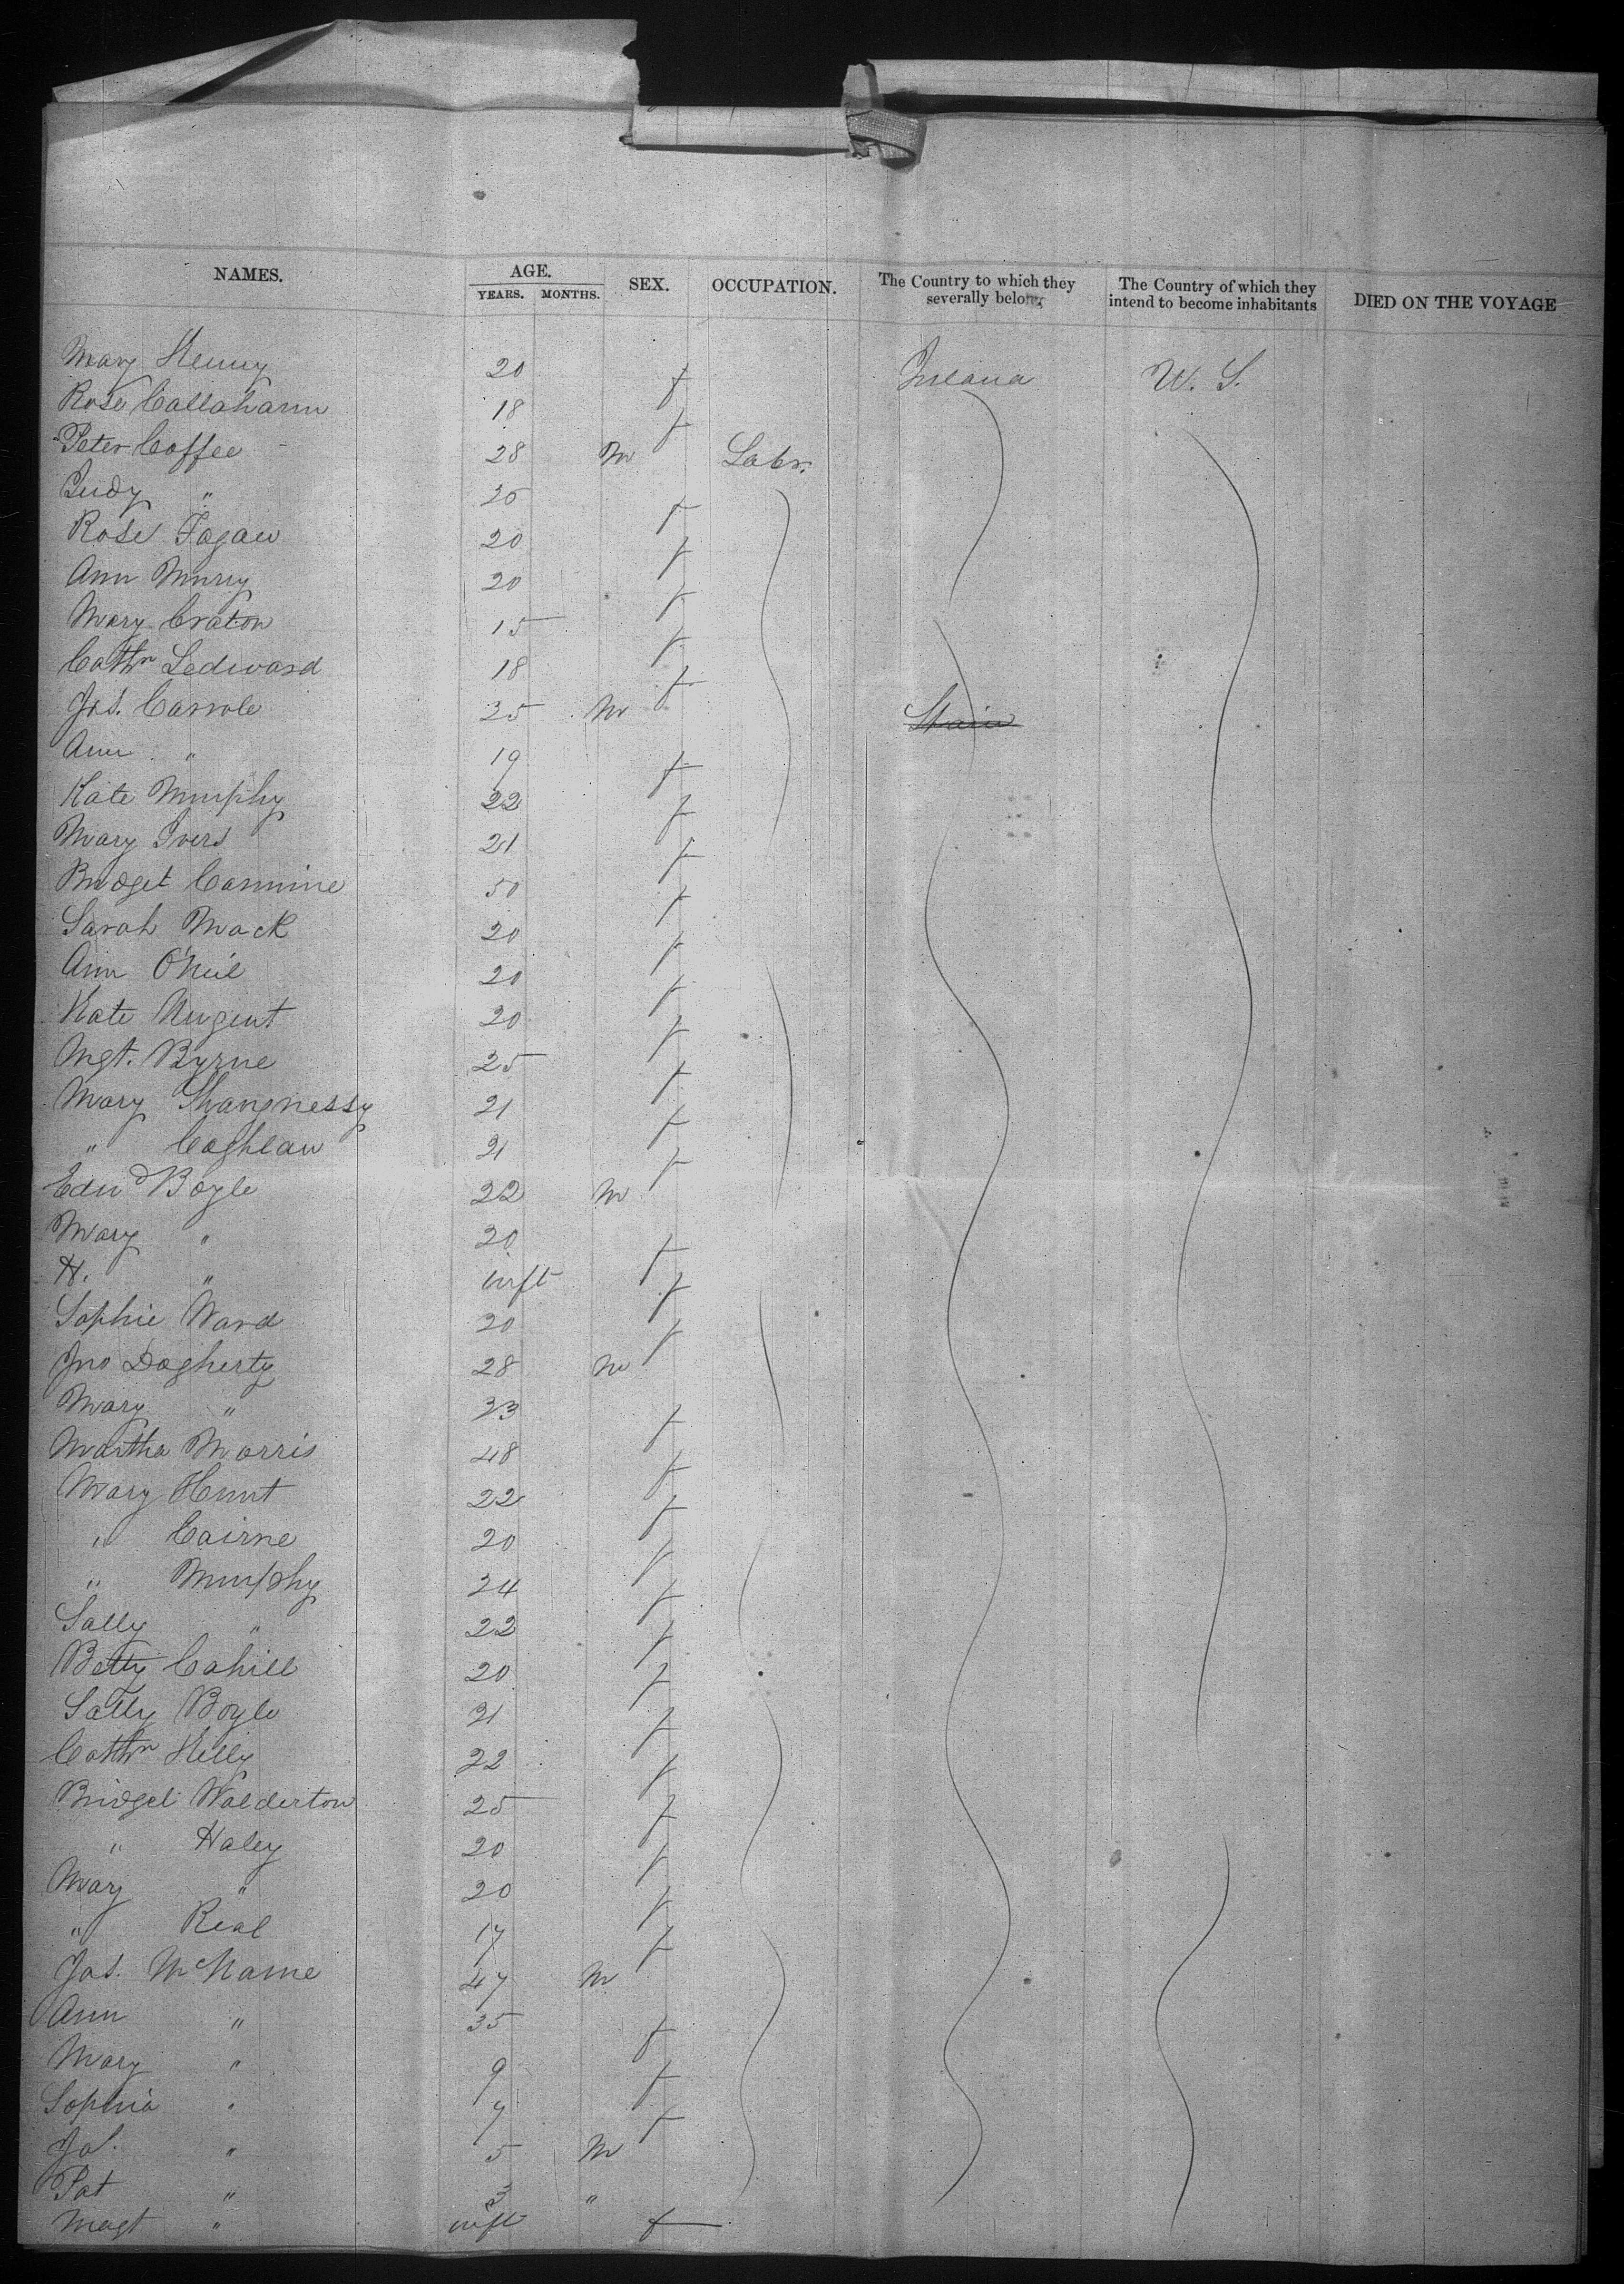 NAMES. AGE. SEX. OCCUPATION. The Country to which they severally belong The Country of which they intend to become inhabitants DIED ON THE VOYAGE
YEARS. MONTHS.
Mary Kenny 20 f Ireland U. S.
Rose Callahann 18 f
Peter Coffee 28 M Labr.
Judy " 26 f
Rose Fagan 20 f
Ann Murry 20 f
Mary Craton 15 f
Cathn Ledward 18 f
Jas. Carrole 25 M
Ann " 19 f
Kate Murphy 22 f
Mary Ivers 21 f
Bridget Cammine 50 f
Sarah Mack 20 f
Ann O'Neil 20 f
Kate Nugent 20 f
Mgt. Byrne 25 f
Mary Shangnessy 21 f
" Coghlan 21 f
Edwd Boyle 22 M
Mary " 20 f
H. " inft f
Sophie Ward 20 f
Jno Dogherty 28 M
Mary " 23 f
Martha Morris 48 f
Mary Hunt 22 f
" Cairne 20 f
" Murphy 24 f
Sally " 22 f
Betty Cahill 20 f
Sally Boyle 21 f
Cathn Kelly 22 f
Bridget Walderton 25 f
" Haley 20 f
Mary " 20 f
" Real 17 f
Jas. McName 47 M
Ann " 35 f
Mary " 9 f
Sophia " 7 f
Jas. " 5 M
Pat " 3 "
Magt " inft f